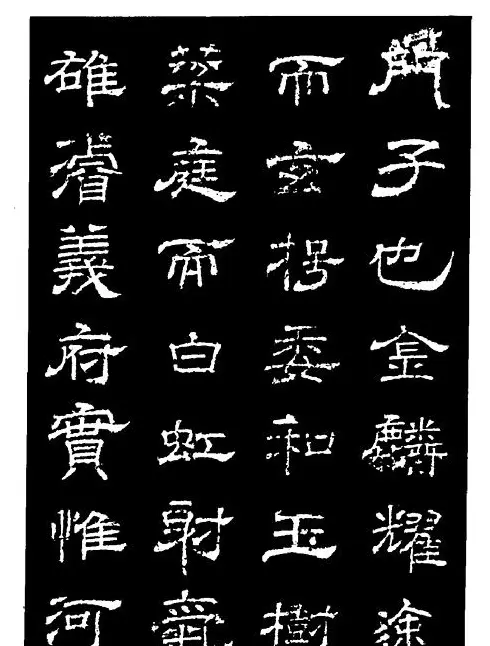 門子也金麟耀途
而玄枵委和玉樹
榮庭而白虹射氣
雄濬義府實惟河